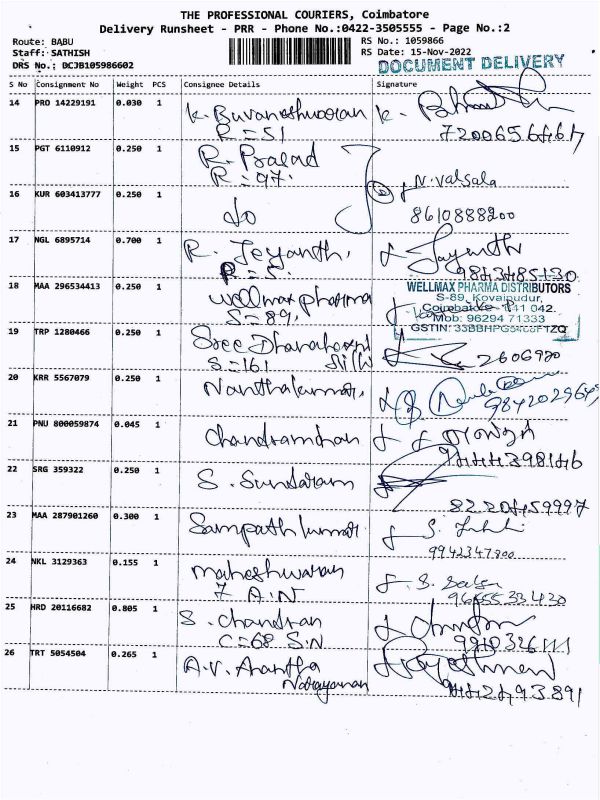 THE PROFESSIONAL COURIERS, Coimbatore
Delivery Runsheet - PRR - Phone No.:0422-3505555 - Page No.:2
Route: BABU
Staff: SATHISH
DRS No.: DCJB105986602
RS No.: 1059866
RS Date: 15-Nov-2022
DOCUMENT DELIVERY
S No Consignment No Weight PCS Consignee Details Signature
14 PRO 14229191 0.030 1 K. Buvaneshwaran K.
R = 51
15 PGT 6110912 0.250 1 R. Prasad
R = 97. N. Valsala
16 KUR 603413777 0.250 1 do 8610888200
17 NGL 6895714 0.700 1 R. Jeyanth. Jayanth
R = 5.
18 MAA 296534413 0.250 1 Wellmax pharma
S = 89,
WELLMAX PHARMA DISTRIBUTORS
S-89, Kovaipudur,
Coimbatore 641 042.
Mob: 96294 71333
GSTIN:
19 TRP 1280466 0.250 1 Sree 2606920
S = 161
20 KRR 5567079 0.250 1 Nanthakumar.
21 PNU 800059874 0.045 1 Chandramohan
22 SRG 359322 0.250 1 S. Sundaram
8220459997
23 MAA 287901260 0.300 1 Sampathkumar S.
9942347800
24 NKL 3129363 0.155 1 Maheshwaran S.
7 A.N 9655533430
25 HRD 20116682 0.805 1 S. Chandran
C = 68 S.N
26 TRT 5054504 0.265 1 A.V. Anantha
Narayanan